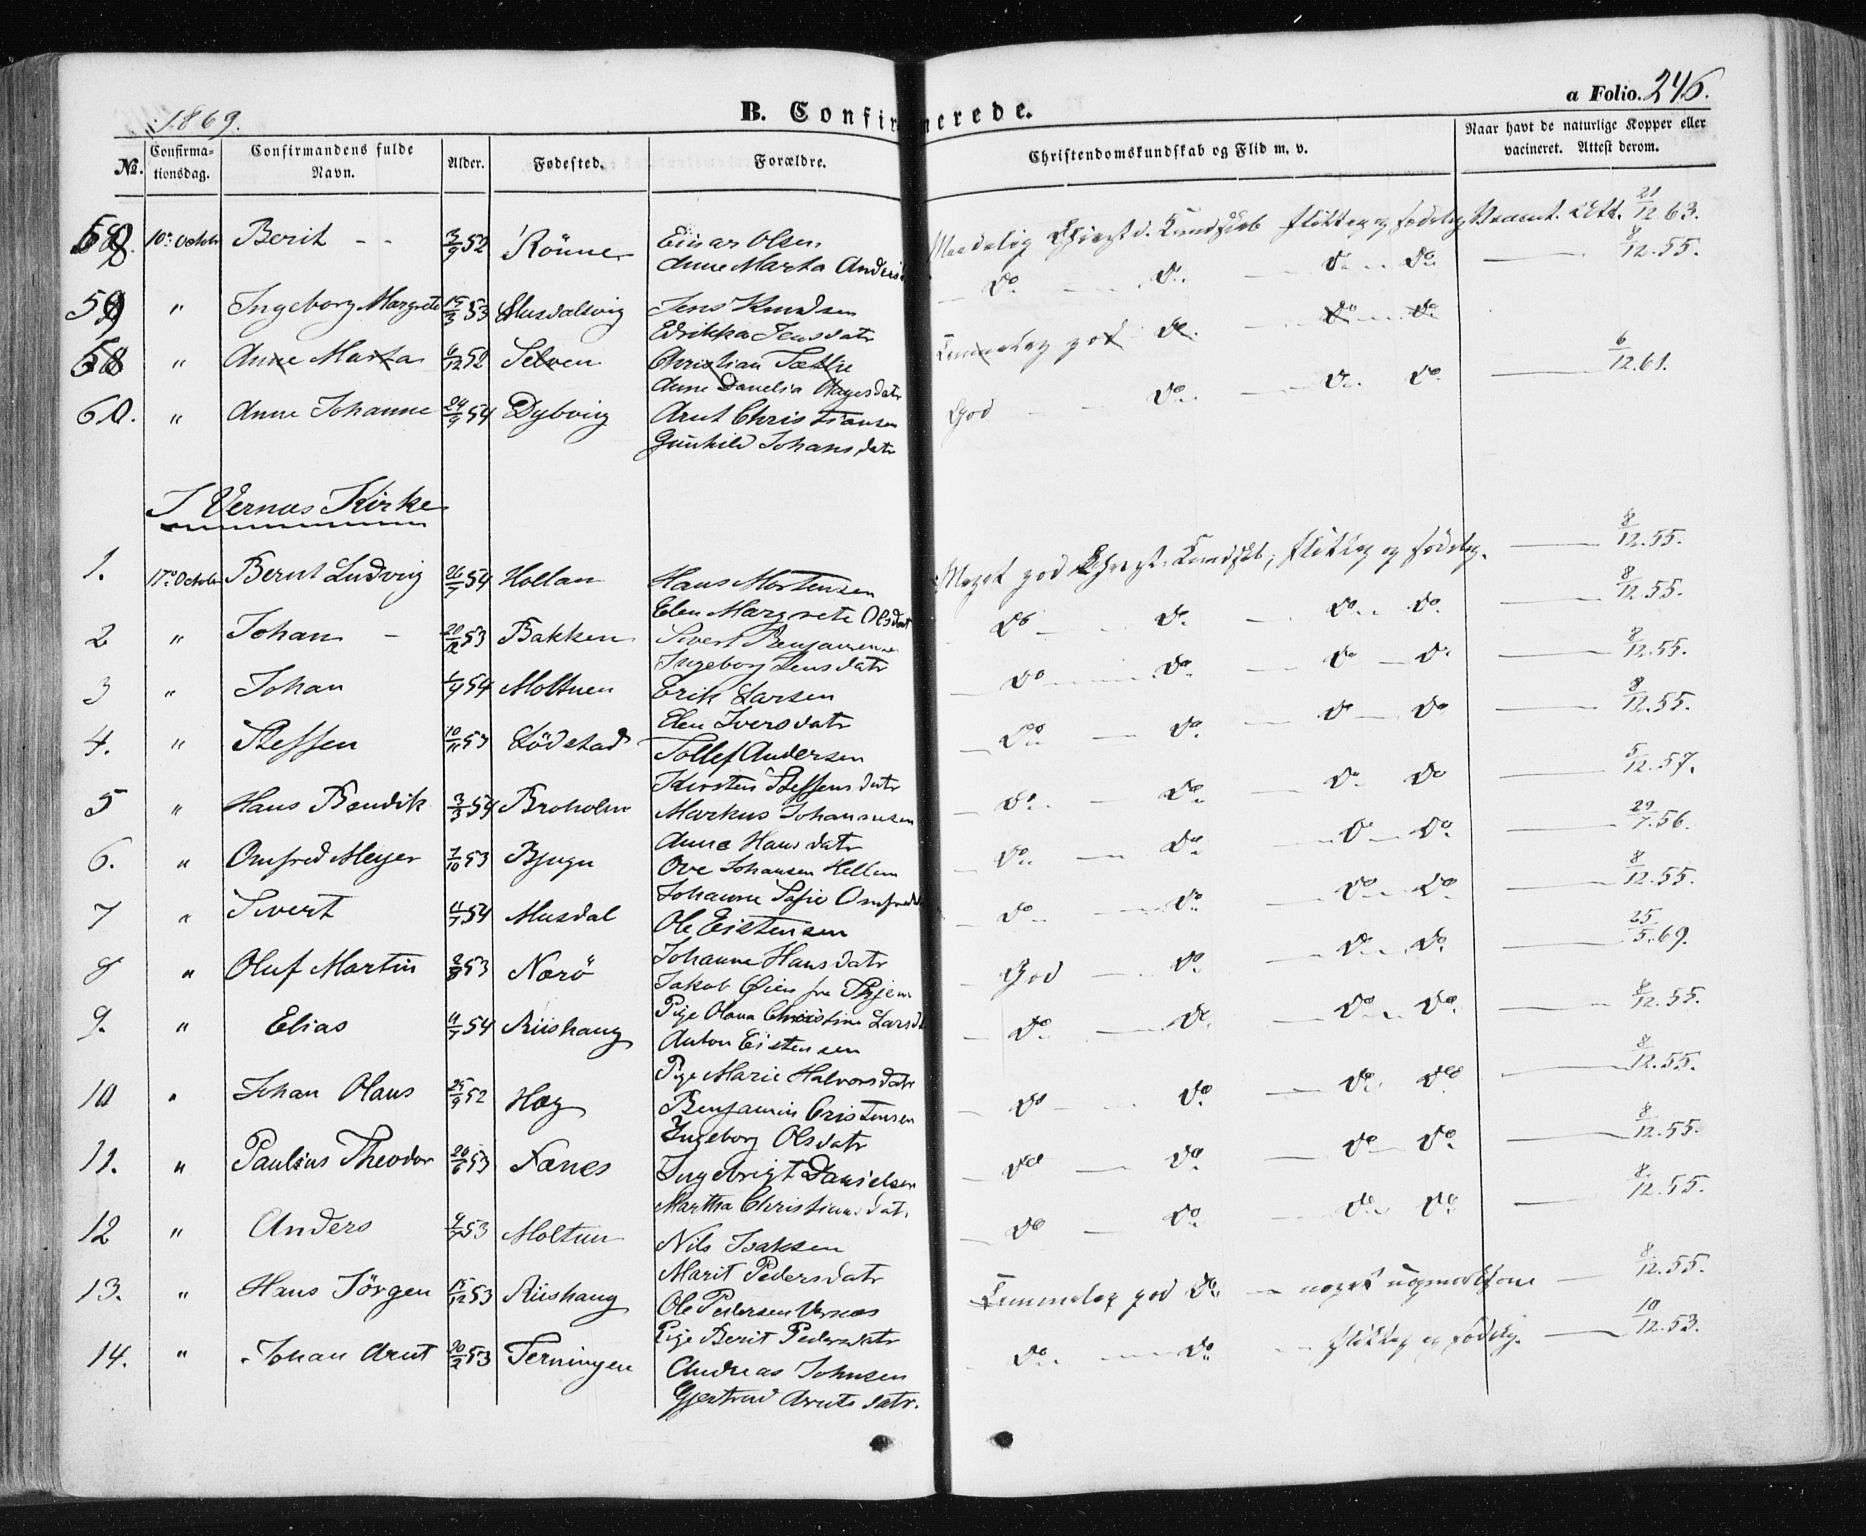 1869.
B. Confirmerede.
a Folio. 246.
No. Confirma-tionsdag. Confirmandens fulde Navn. Alder. Fødested. Forældre. Christendomskundskab og Flid m. v. Naar havt de naturlige Kopper eller vacineret. Attest derom.
10de Octobr Berit - - 3/9 52 Rönne Einar Olsen 21/12.63.
Anne Marta Anders
59 " Ingeborg Margrete 15/3 53 Musdalsvig Jens Knudsen Do Do. Do. Do. 8/12.55.
Edrikka Jensdatr
58 " Anne Marta 6/12 52 Selven Christian Sættre Temmelig god Do. Do Do.
Anne Danelia Aagesdatr
60. " Anne Johanne 24/9 54 Dybvig Arnt Christiansen God Do. Do. Do. 6/12.61.
Gunhild Johansdatr
I Vernæs Kirke
1. 17de Octobr Bernt Ludvig 26/7 54 Hollan Hans Mortensen Meget god Christ. Kundskb, flittig og sædelig. 8/12.55.
Elen Margrete Olsdat
2 " Johan - 20/12 53 Bakken Sivert Benjaminsen Do Do. Do. Do. 8/12.55.
Ingeborg Jensdatr
3 " Johan 1/4 54 Moltuen Erik Larsen Do Do. Do Do. 8/12.55.
Elen Iversdatr
4. " Steffen 10/11 53 Lödstad Tollef Andersen Do. Do. Do Do 8/12.55.
Kirsten Steffensdatr
5 " Hans Bendik 3/3 54 Broholm Markus Johannsen Do. Do. Do Do 5/12.57.
Anna Hansdatr
6. " Omfred Meyer 7/10 53 Bjugn Ove Johansen Hellem Do. Do Do Do. 29/7.56.
Johanne Sofie Omfredsd
7 " Sivert 11/7 54 Musdal Ole Eistensen Do. Do. Do. Do 8/12.55.
Johanne Hansdatr
8 " Oluf Martin 2/8 53 Nærö Jakob Öien fra God Do. Do. Do. 25/5.69.
Pige Olava Christine Larsd
9. " Elias 11/7 54 Riishaug Anton Eistensen Do Do. Do Do. 8/12.55.
Pige Marie Halvorsdatr
10 " Johan Olaus 25/9 52 Hoy Benjamin Cristensen Do Do. Do. Do 8/12.55.
Ingeborg Olsdatr
11. " Paulius Theodor 20/6 53 Fænes Ingebrigt Danielsen Do Do. Do Do. 8/12.55.
Martha Christiansdat.
12 " Anders 9/7 53 Moltun Nils Isaksen Do Do. Do. Do. 8/12.55.
Marit Pedersdatr
13. " Hans Jörgen 15/12 53 Riishaug Ole Pedersen Vernæs Temmelig god Do. noget uopmerksom 8/12.55.
Pige Berit Pedersdatr
14. " Johan Arnt 20/2 53 Terningen Andreas Johnsen Do. Do. flittig og sædelig. 10/12.53.
Gjertrud Arntsdatr.